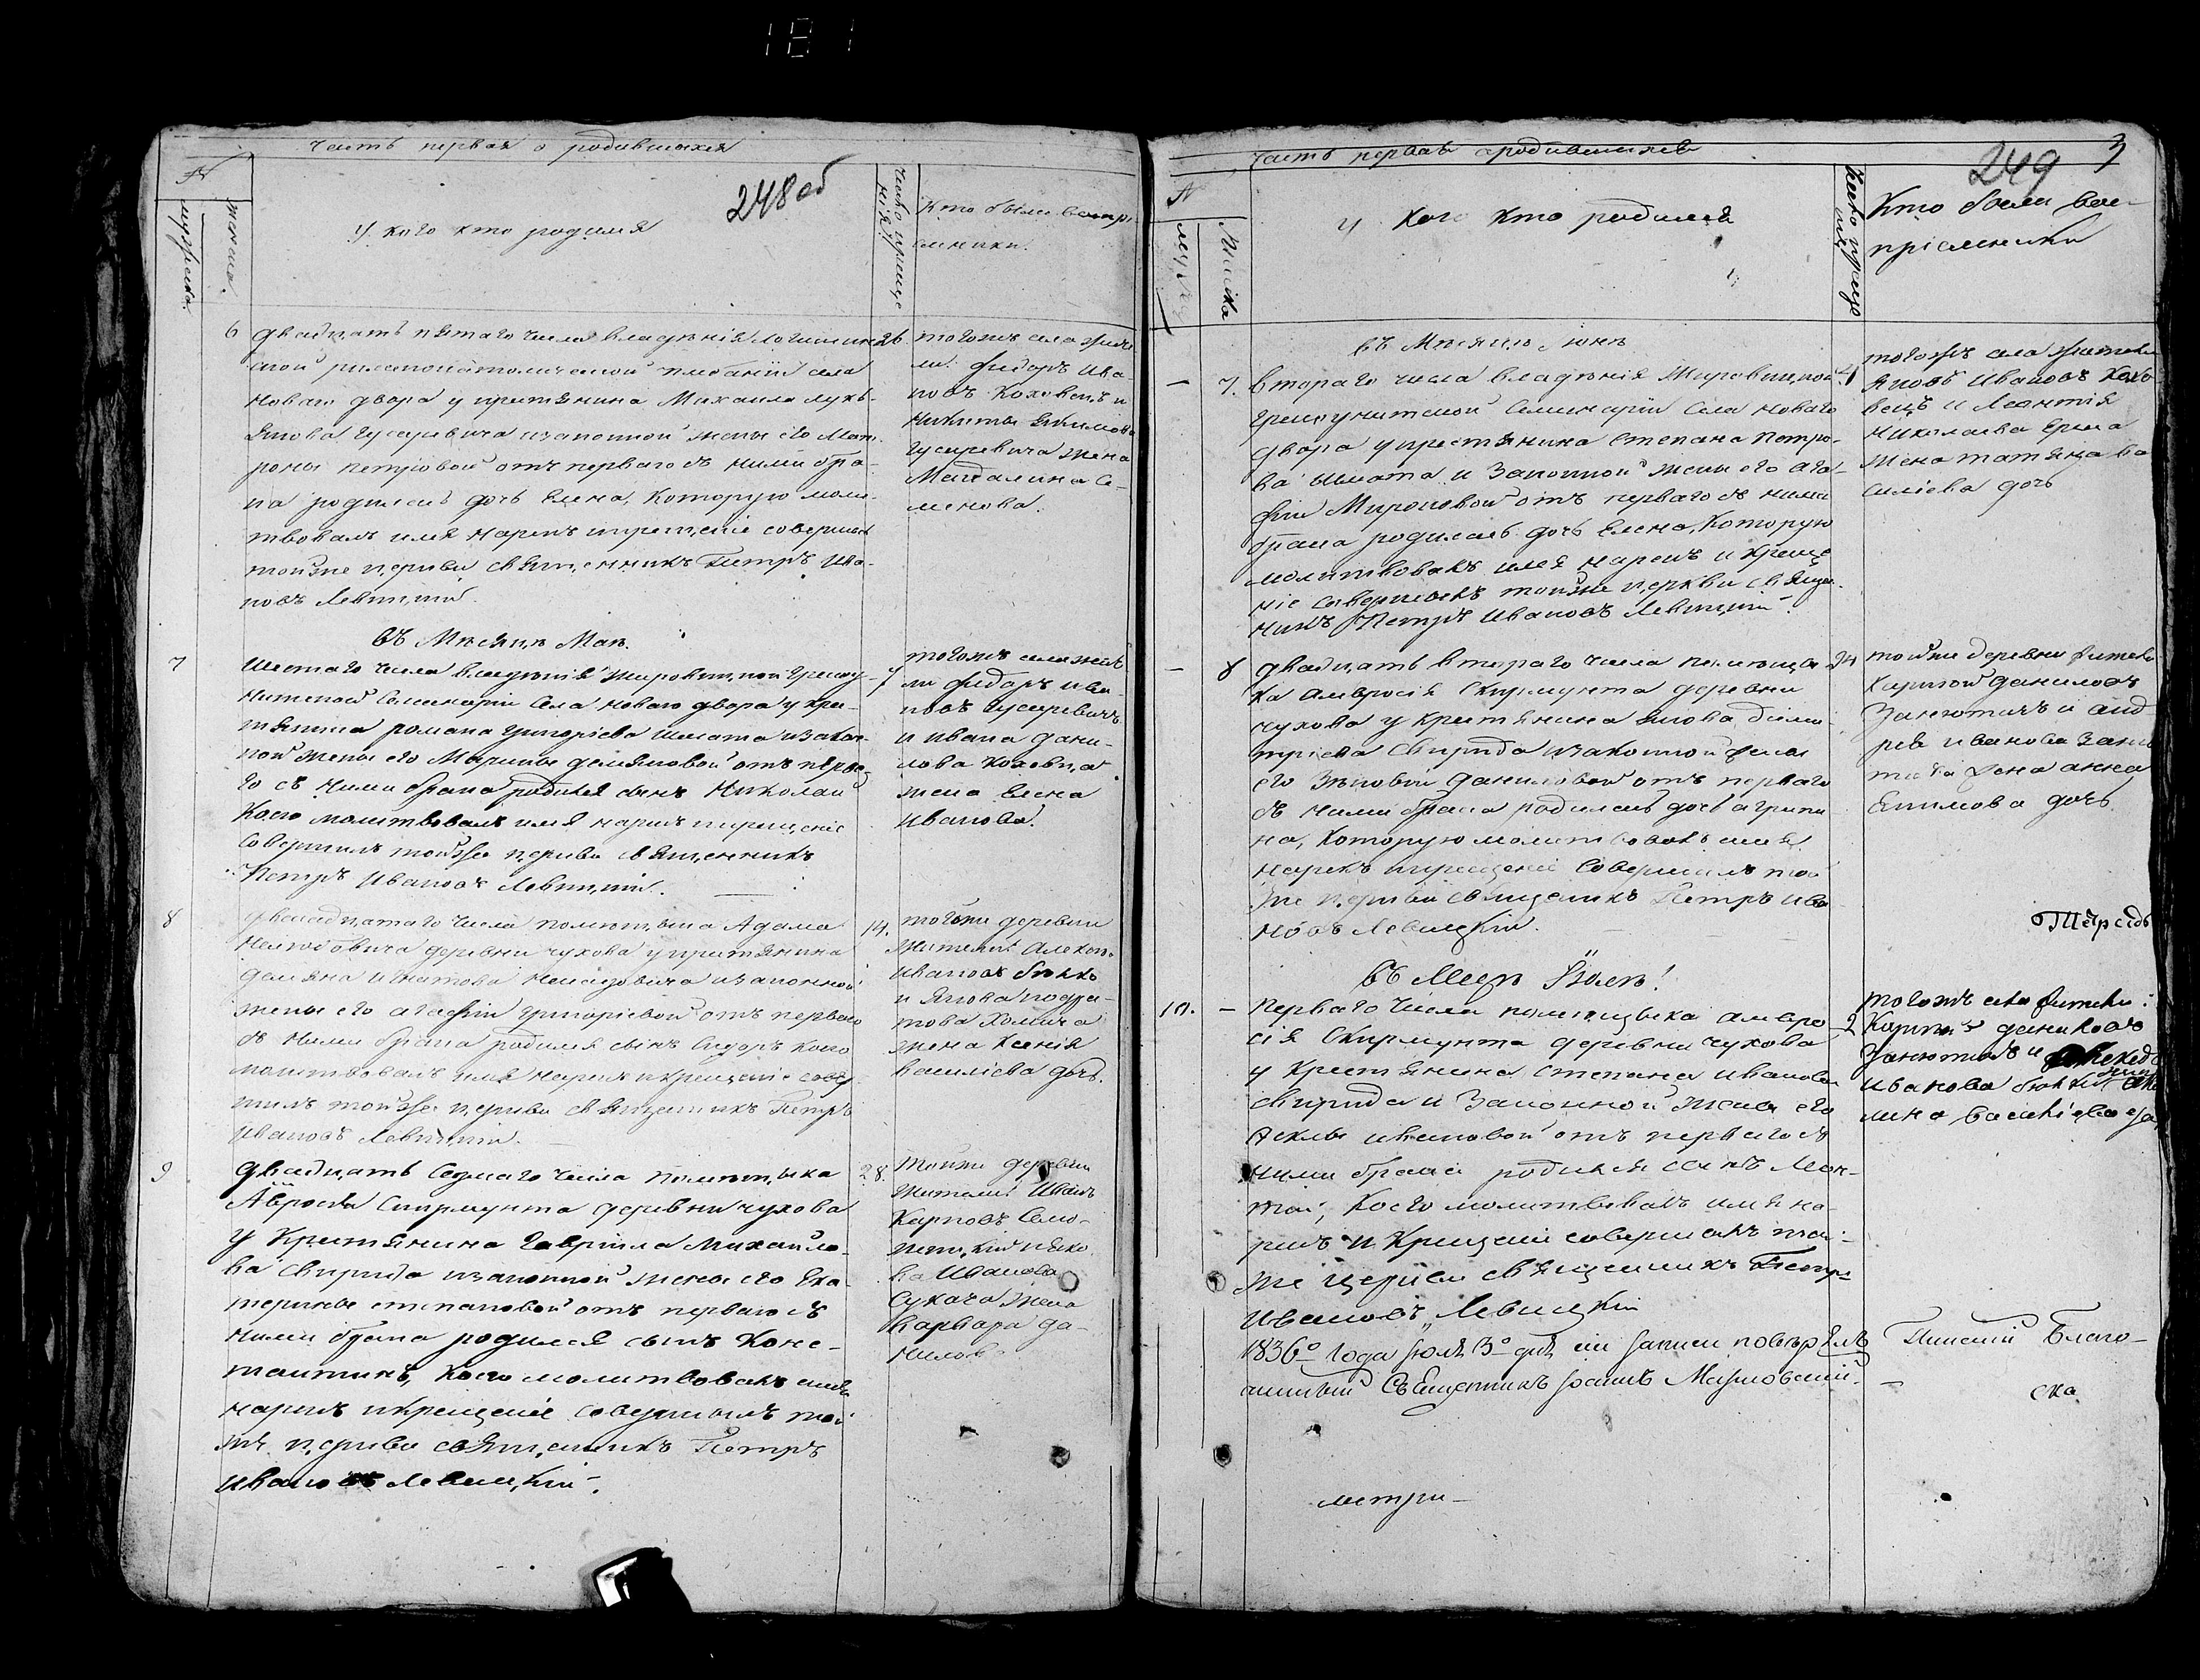 181
Часть первая о родившихся
248 об
№
мужеска.
женска.
У кого кто родился
Число крище
нія
Кто были воспрі
емники.
6
двадцать пятаго числа владѣнія Логишин
26.
ской римскокатолической плебаніи села
Новаго двора у кристянина Михаила лукь-
янова Гусаревича изаконной жены его Мат-
роны петровой отъ перваго съ ними бра-
ка родилась дочь Елена, Которую моли-
твовалъ имя нарекъ икрещеніе совершилъ
тойже церкви священникъ Петръ Ива-
новъ Левицкій.
тогожъ села жите
ли: фидоръ Ива-
новъ Коховецъ и
Никиты Якимова
Гусаревича жена
Магдалина Се-
менова.
въ Мѣсяцѣ Маѣ.
7
Шестаго числа владѣнія Жировицкой Греку-
7
нитской Семинаріи Села Новаго двора у кри-
стянина романа григоріева Шмата изакон-
ной жены его Марины демяновой отъ перва-
го съ ними брака родился сынъ Николай
Коего молитвовалъ имя нарекъ икрещеніе
Совершилъ тойже церкви священникъ
Петръ Ивановъ Левицкій.
тогожъ села жите
ли фидоръ ива-
новъ Гусаревичъ
и ивана дани-
лова Коховца
жена Елена
Иванова.
8
числа помещика Адама
14.
деревни чухова у кристянина
демяна изаконной
жены его агафіи григоріевой отъ перваго
съ ними брака родился сынъ Сидоръ Коего
молитвовалъ имя нарекъ икрещеніе совер
шилъ тойже церкви священникъ Петръ
Ивановъ Левицкій.
тойже деревни
жители: Алексей
Ивановъ Бюкко
и Якова
това Хомича
жена Ксенія
василіева дочь.
9
двадцать Седмаго числа помещика
28.
Амвросія Скирмунта деревни чухова
у Кристянина Гавріила Михайло-
ва Свирида изаконной жены его Ека-
терины степановой отъ перваго съ
ними брака родился сынъ Конс-
тантинъ, Коего молитвовалъ имя
нарекъ икрещеніе совершилъ той
же церкви священникъ Петръ
Ивановъ Левицкій.
тойже деревни
жители Иванъ
Карповъ
и Яко
ва Иванова
Сукача жена
Варвара да-
нилов
Часть первая о родившихся
249
3
№
Женска
у кого кто родился
Число креще
нія
Кто были вос-
пріемники
въ Мѣсяцѣ Іюнѣ
—
7.
втораго числа владѣнія Жировицкой
4
грекоунитской Семинаріи Села Новаго
двора у крестянина Степана Петро-
ва Шмата и Законной жены его ага-
фіи Мироновой отъ перваго съ ними
брака родилась дочь Елена, Которую
молитвовалъ имя нарекъ и Креще
ніе Совершилъ тойже церкви Священ-
никъ Петръ Ивановъ Левицкій.
тогожъ села жители
Яковъ Ивановъ Кохо-
вецъ и Леонтія
Николаева Ерша
жена татяна ва
силіева дочь
—
8
двадцать втораго числа помещи
24
ка Амвросія Скирмунта деревни
чухова у Кристянина Якова дими-
тріева Свирида изаконной жены
его Зѣновіи Даниловой отъ перваго
съ ними брака родилась дочь агрипи
на, Которую молитвовалъ имя
нарекъ икрещеніе Совершилъ той
же церкви священикъ Петръ ива
новъ Левицкій.
тойже деревни жители
Данилов
и анд-
рея иванова
жена анна
Екимова дочь
въ Мсцѣ Іюлѣ!
10.
—
Перваго числа помещика амвро
2
сія Скирмунта деревни чухова
у Крестянина Степана Иванова
Свирида и Законной жены его
теклы ивановой отъ перваго съ
ними брака родился сынъ Леон-
тій, Коего молитвовалъ имя на-
рекъ и Крещеніе совершилъ той-
же церкви священникъ Петръ
Ивановъ Левицкій
тогожъ села жители:
данилов
и
иванова
василіева
1836º года Іюля 3º дня сіи записи повѣрялъ
Пинскій Благо-
чинный Священникъ Іоаннъ
—
ска
метри-